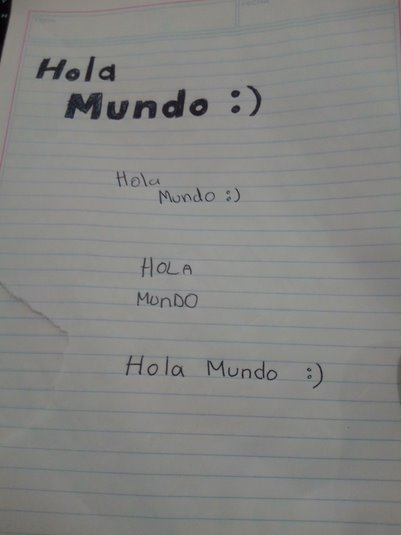 Hola
Mundo :)
Hola
Mundo :)
HOLA
MunDO
Hola Mundo :)